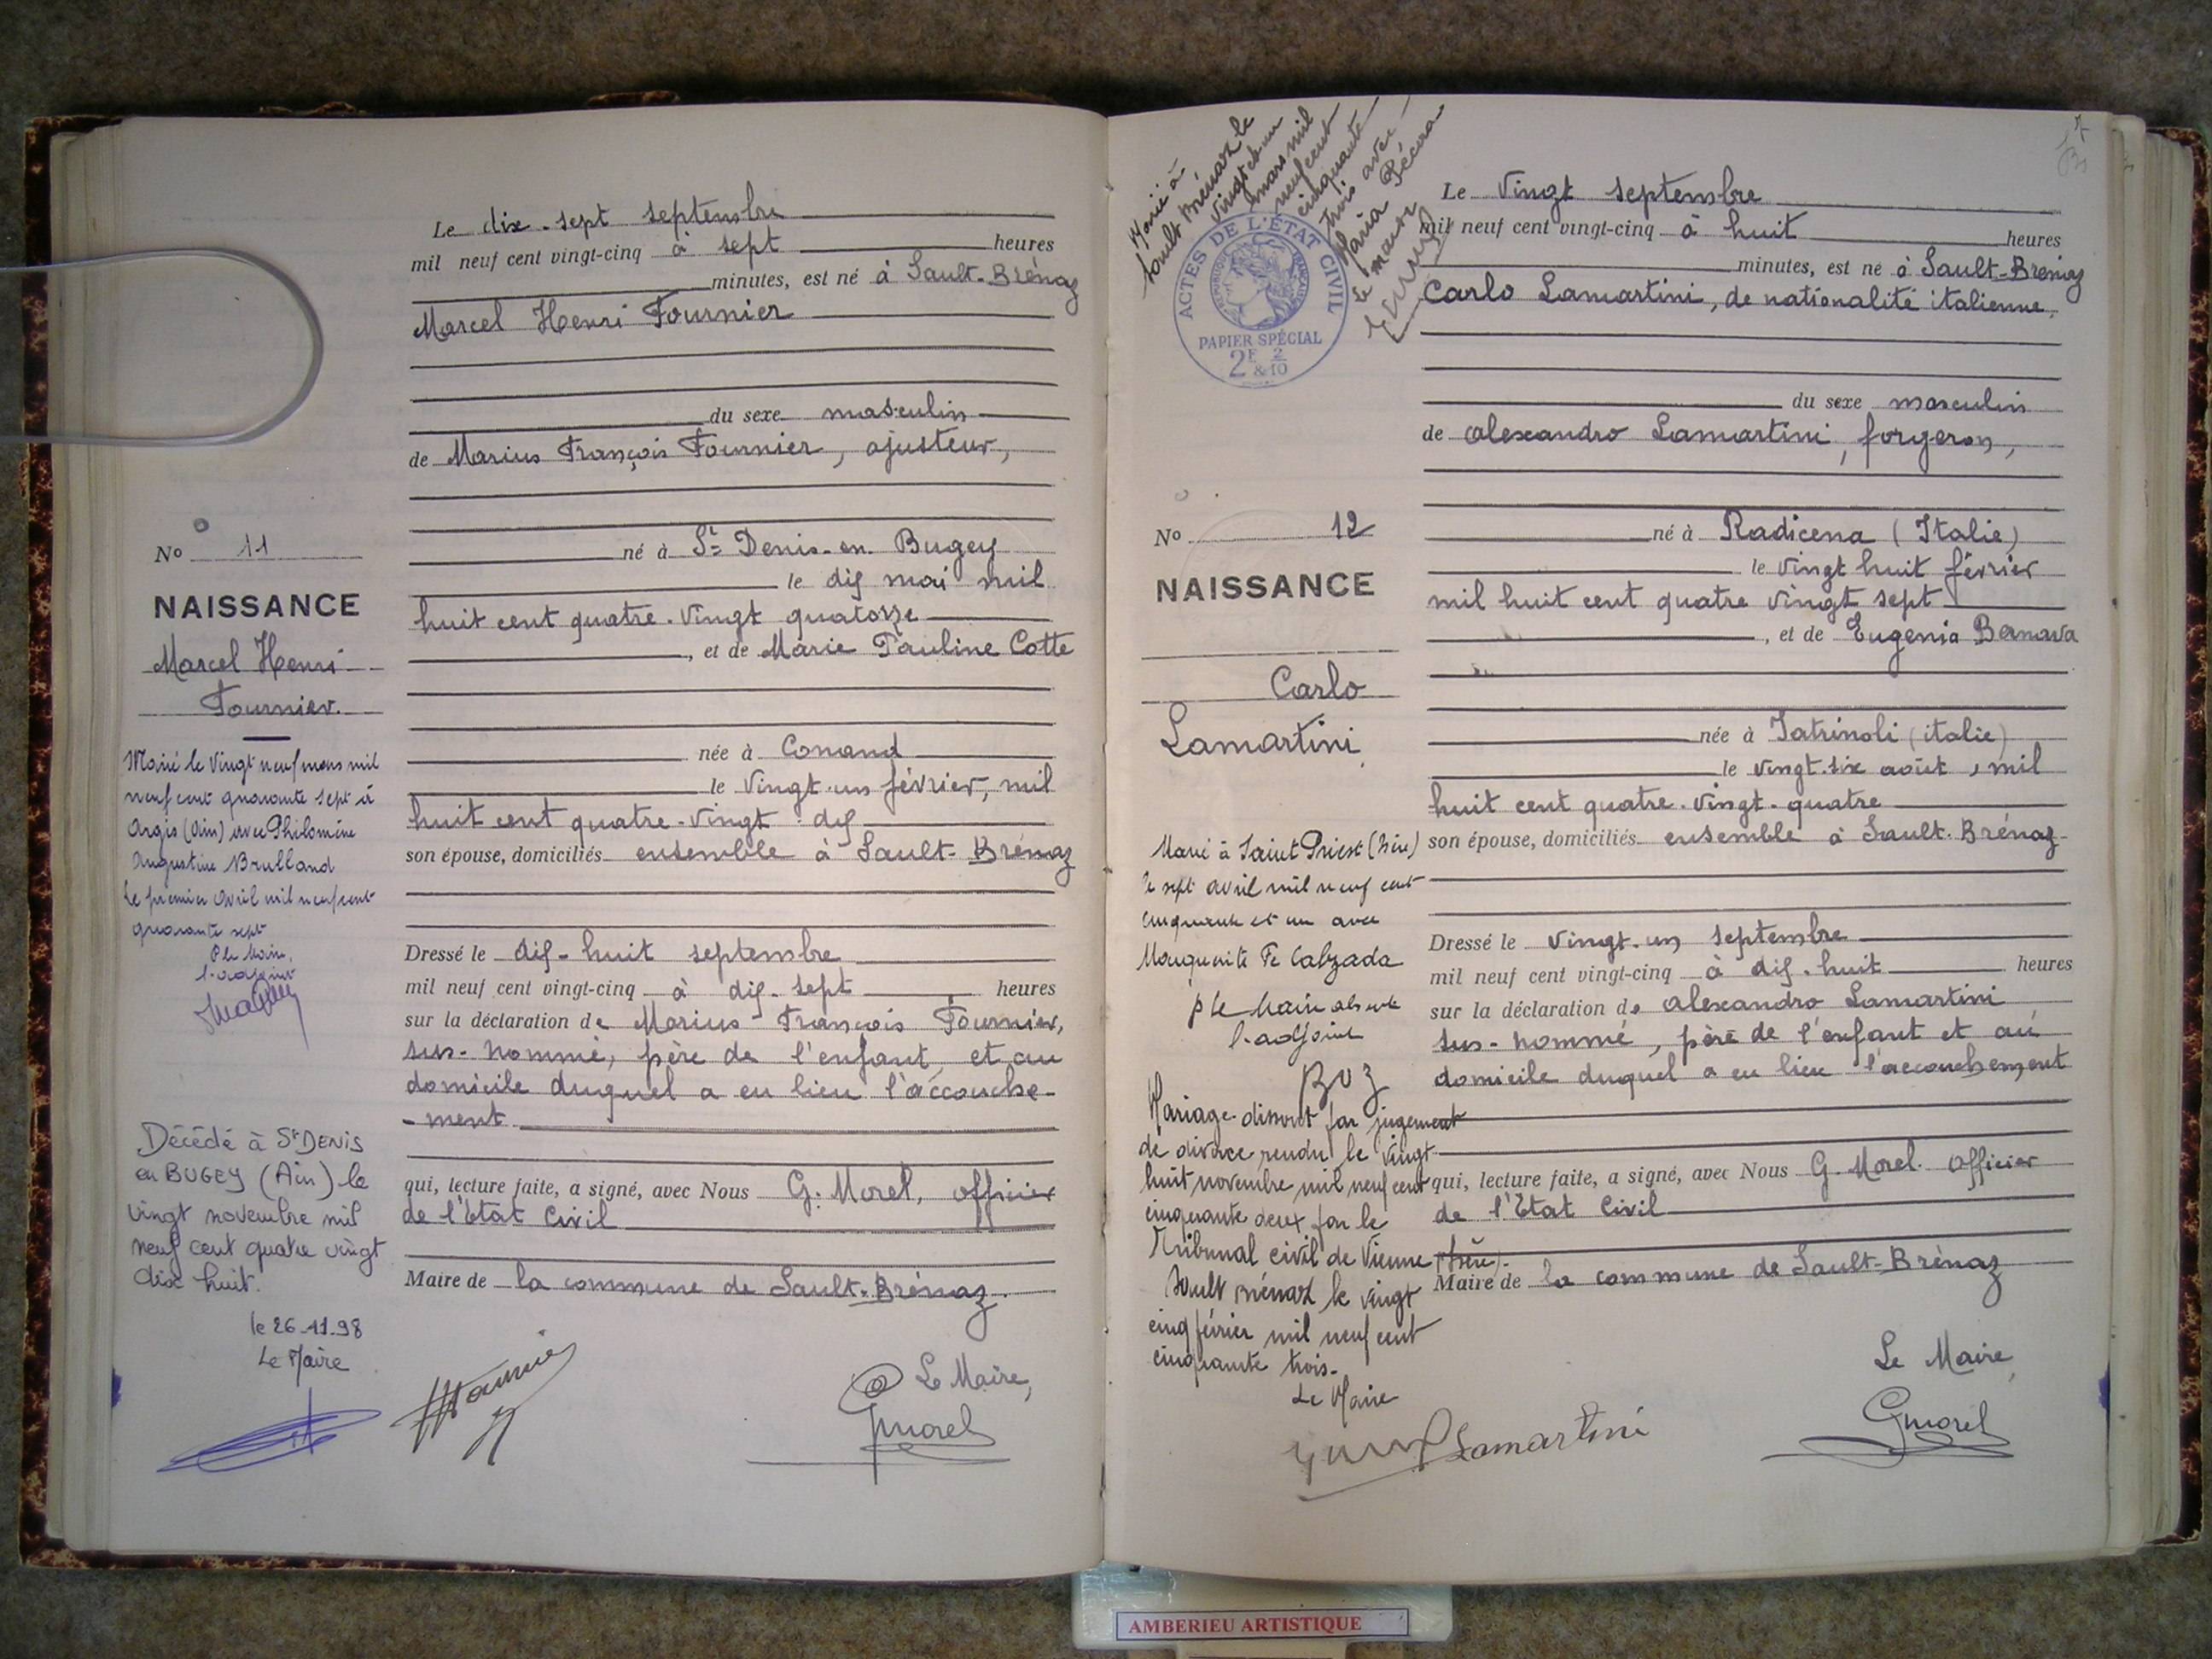 Le dix-sept septembre
mil neuf cent vingt-cinq à sept heures
minutes, est né à Sault-Brénaz
Marcel Henri Fournier
du sexe masculin
de Marius François Fournier, ajusteur,
né à St Denis-en Bugey
le dix mai mil
huit cent quatre-vingt quatorze
, et de Marie Pauline Cotte
née à Conand
le vingt-un février, mil
huit cent quatre-vingt-dix
son épouse, domiciliés ensemble à Sault-Brénaz
Dressé le dix-huit septembre
mil neuf cent vingt-cinq à dix-sept heures
sur la déclaration de Marius François Fournier,
sus-nommé, père de l'enfant, et au
domicile duquel a eu lieu l'accouche-
-ment
qui, lecture faite, a signé, avec Nous G. Morel, officier
de l'Etat Civil
Maire de la commune de Sault-Brénaz.
Le Maire,
GMorel
No 11
NAISSANCE
Marcel Henri
Fournier.
Marié le vingt neuf mars mil
neuf cent quarante sept à
Argis (Ain) avec Philomène
Augustine Brulland
Le premier avril mil neuf cent
quarante sept
P. le Maire,
l'adjoint
Décédé à St DENIS
en BUGEY (Ain) le
vingt novembre mil
neuf cent quatre vingt
dix huit.
le 26-11-98
Le Maire
Marié à
Sault Brénaz le
vingt et un
mars mil
neuf cent
cinquante
trois avec
Maria Pécora
Le maire
ACTES DE L'ÉTAT CIVIL
RÉPUBLIQUE FRANÇAISE
PAPIER SPÉCIAL
2F & 2/10
Le Vingt septembre
mil neuf cent vingt-cinq à huit heures
minutes, est né à Sault-Brénaz
Carlo Lamartini, de nationalité italienne,
du sexe masculin
de Alexandro Lamartini, forgeron,
né à Radicena (Italie)
le vingt huit février
mil huit cent quatre vingt sept
, et de Eugenia Bernava
née à Jatrinoli (italie)
le vingt-six août, mil
huit cent quatre-vingt-quatre
son épouse, domiciliés ensemble à Sault-Brénaz
Dressé le vingt-un septembre
mil neuf cent vingt-cinq à dix-huit heures
sur la déclaration de Alexandro Lamartini
sus-nommé, père de l'enfant et au
domicile duquel a eu lieu l'accouchement
qui, lecture faite, a signé, avec Nous G. Morel officier
de l'Etat Civil
Maire de la commune de Sault-Brénaz
Le Maire,
Lamartini
GMorel
No 12
NAISSANCE
Carlo
Lamartini
Marié à Saint Priest (Isère)
le sept avril mil neuf cent
cinquante et un avec
Marguerite Fe Calzada
p le Maire absent
l'adjoint
Mariage dissout par jugement
de divorce rendu le vingt
huit novembre mil neuf cent
cinquante deux par le
Tribunal civil de Vienne (Isère).
Sault Brénaz le vingt
cinq février mil neuf cent
cinquante trois.
Le Maire
AMBERIEU ARTISTIQUE